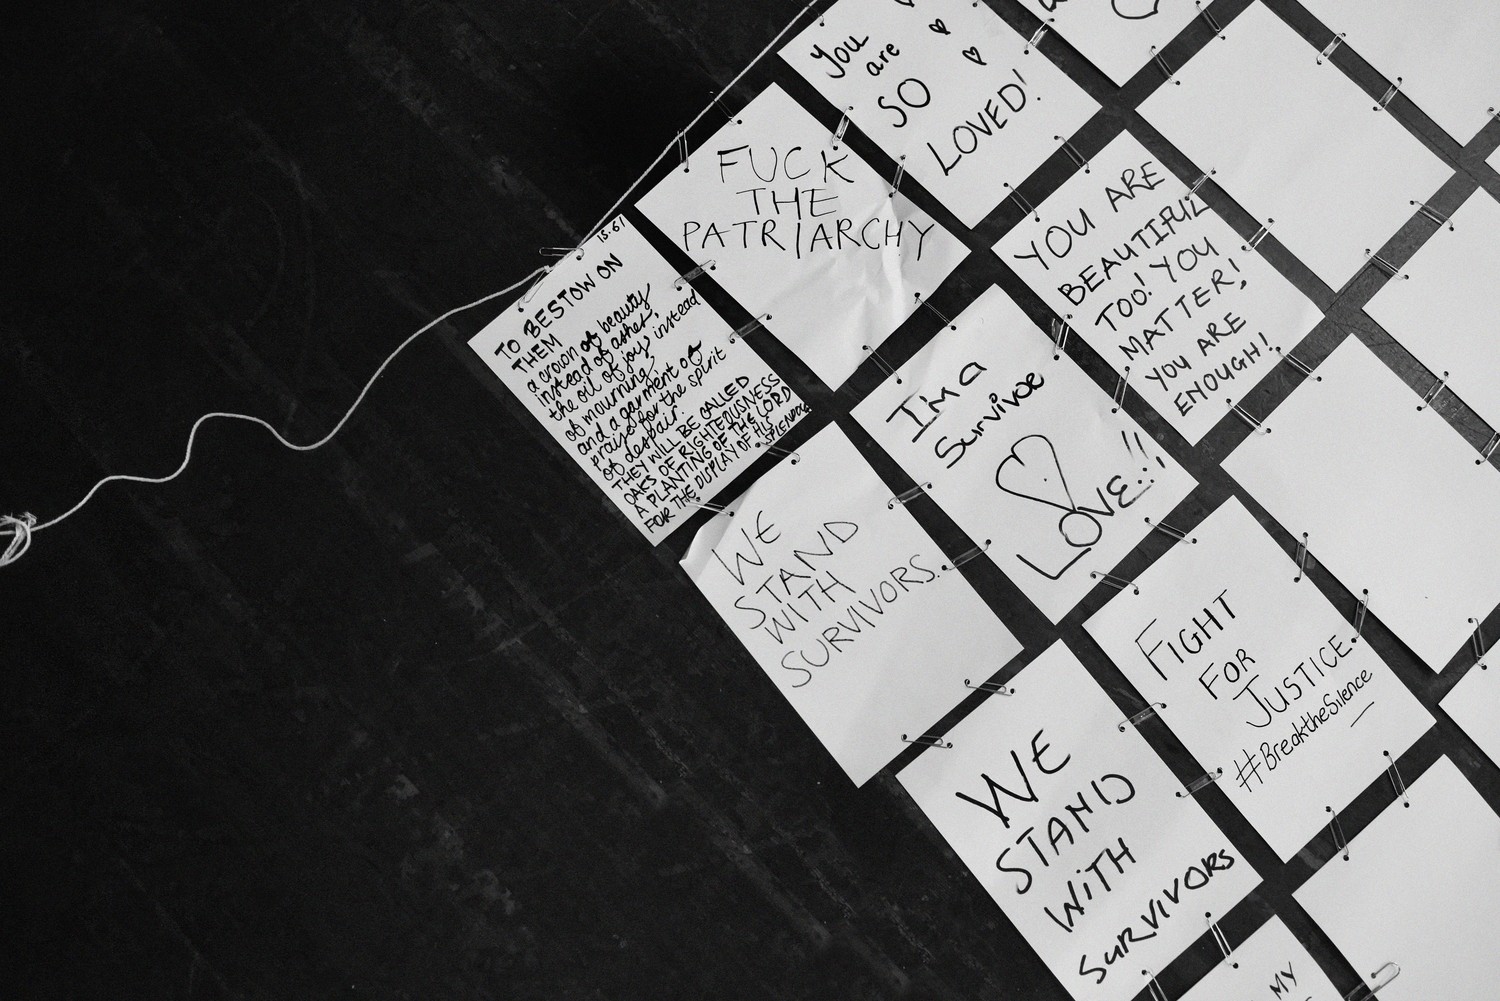 You
are
SO
LOVED!
FUCK
THE
PATRIARCHY
YOU ARE
BEAUTIFUL
TOO! YOU
MATTER!
YOU ARE
ENOUGH!
IS.61
TO BESTOW ON
THEM
a crown of beauty
instead of ashes,
the oil of joy instead
of mourning
and a garment of
praise for the spirit
of despair.
THEY WILL BE CALLED
OAKS OF RIGHTEOUSNESS
A PLANTING OF THE LORD
FOR THE DISPLAY OF HIS
SPLENDOR
I'm a
Survivor
LOVE..!!
WE
STAND
WITH
SURVIVORS.
FIGHT
FOR
JUSTICE.
#BreaktheSilence
WE
STAND
WiTH
SURVIVORS
MY